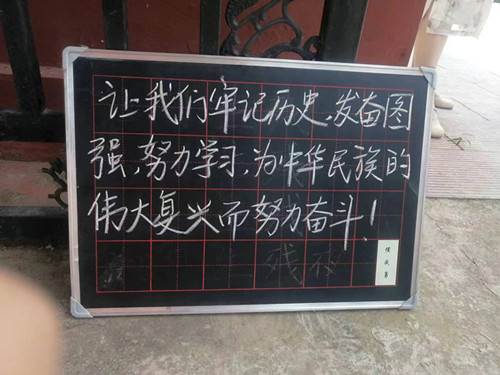 让我们牢记历史,发奋图
强,努力学习,为中华民族的
伟大复兴而努力奋斗!